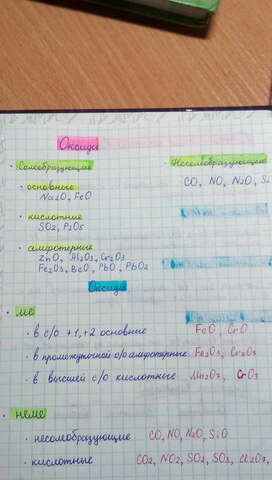 Оксиды
• Солеобразующие
• Несолеобразующие
• основные
Na₂O, FeO
CO, NO, N₂O, Si
• кислотные
SO₂, P₂O₅
• амфотерные
ZnO, Al₂O₃, Cr₂O₃
Fe₂O₃, BeO, PbO, PbO₂
Оксиды
• ме
• в с/о +1,+2 основные FeO, CrO
• в промежуточной с/о амфотерные Fe₂O₃, Cr₂O₃
• в высшей с/о кислотные Mn₂O₇, CrO₃
• неме
• несолеобразующие CO, NO, N₂O, SiO
• кислотные CO₂, NO₂, SO₂, SO₃, Cl₂O₇,